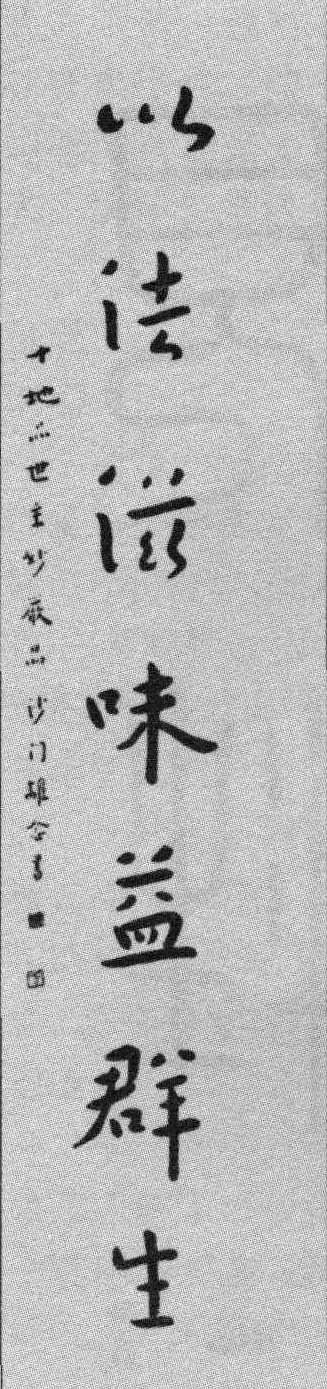 以法滋味益群生
十地世主妙严品沙门书